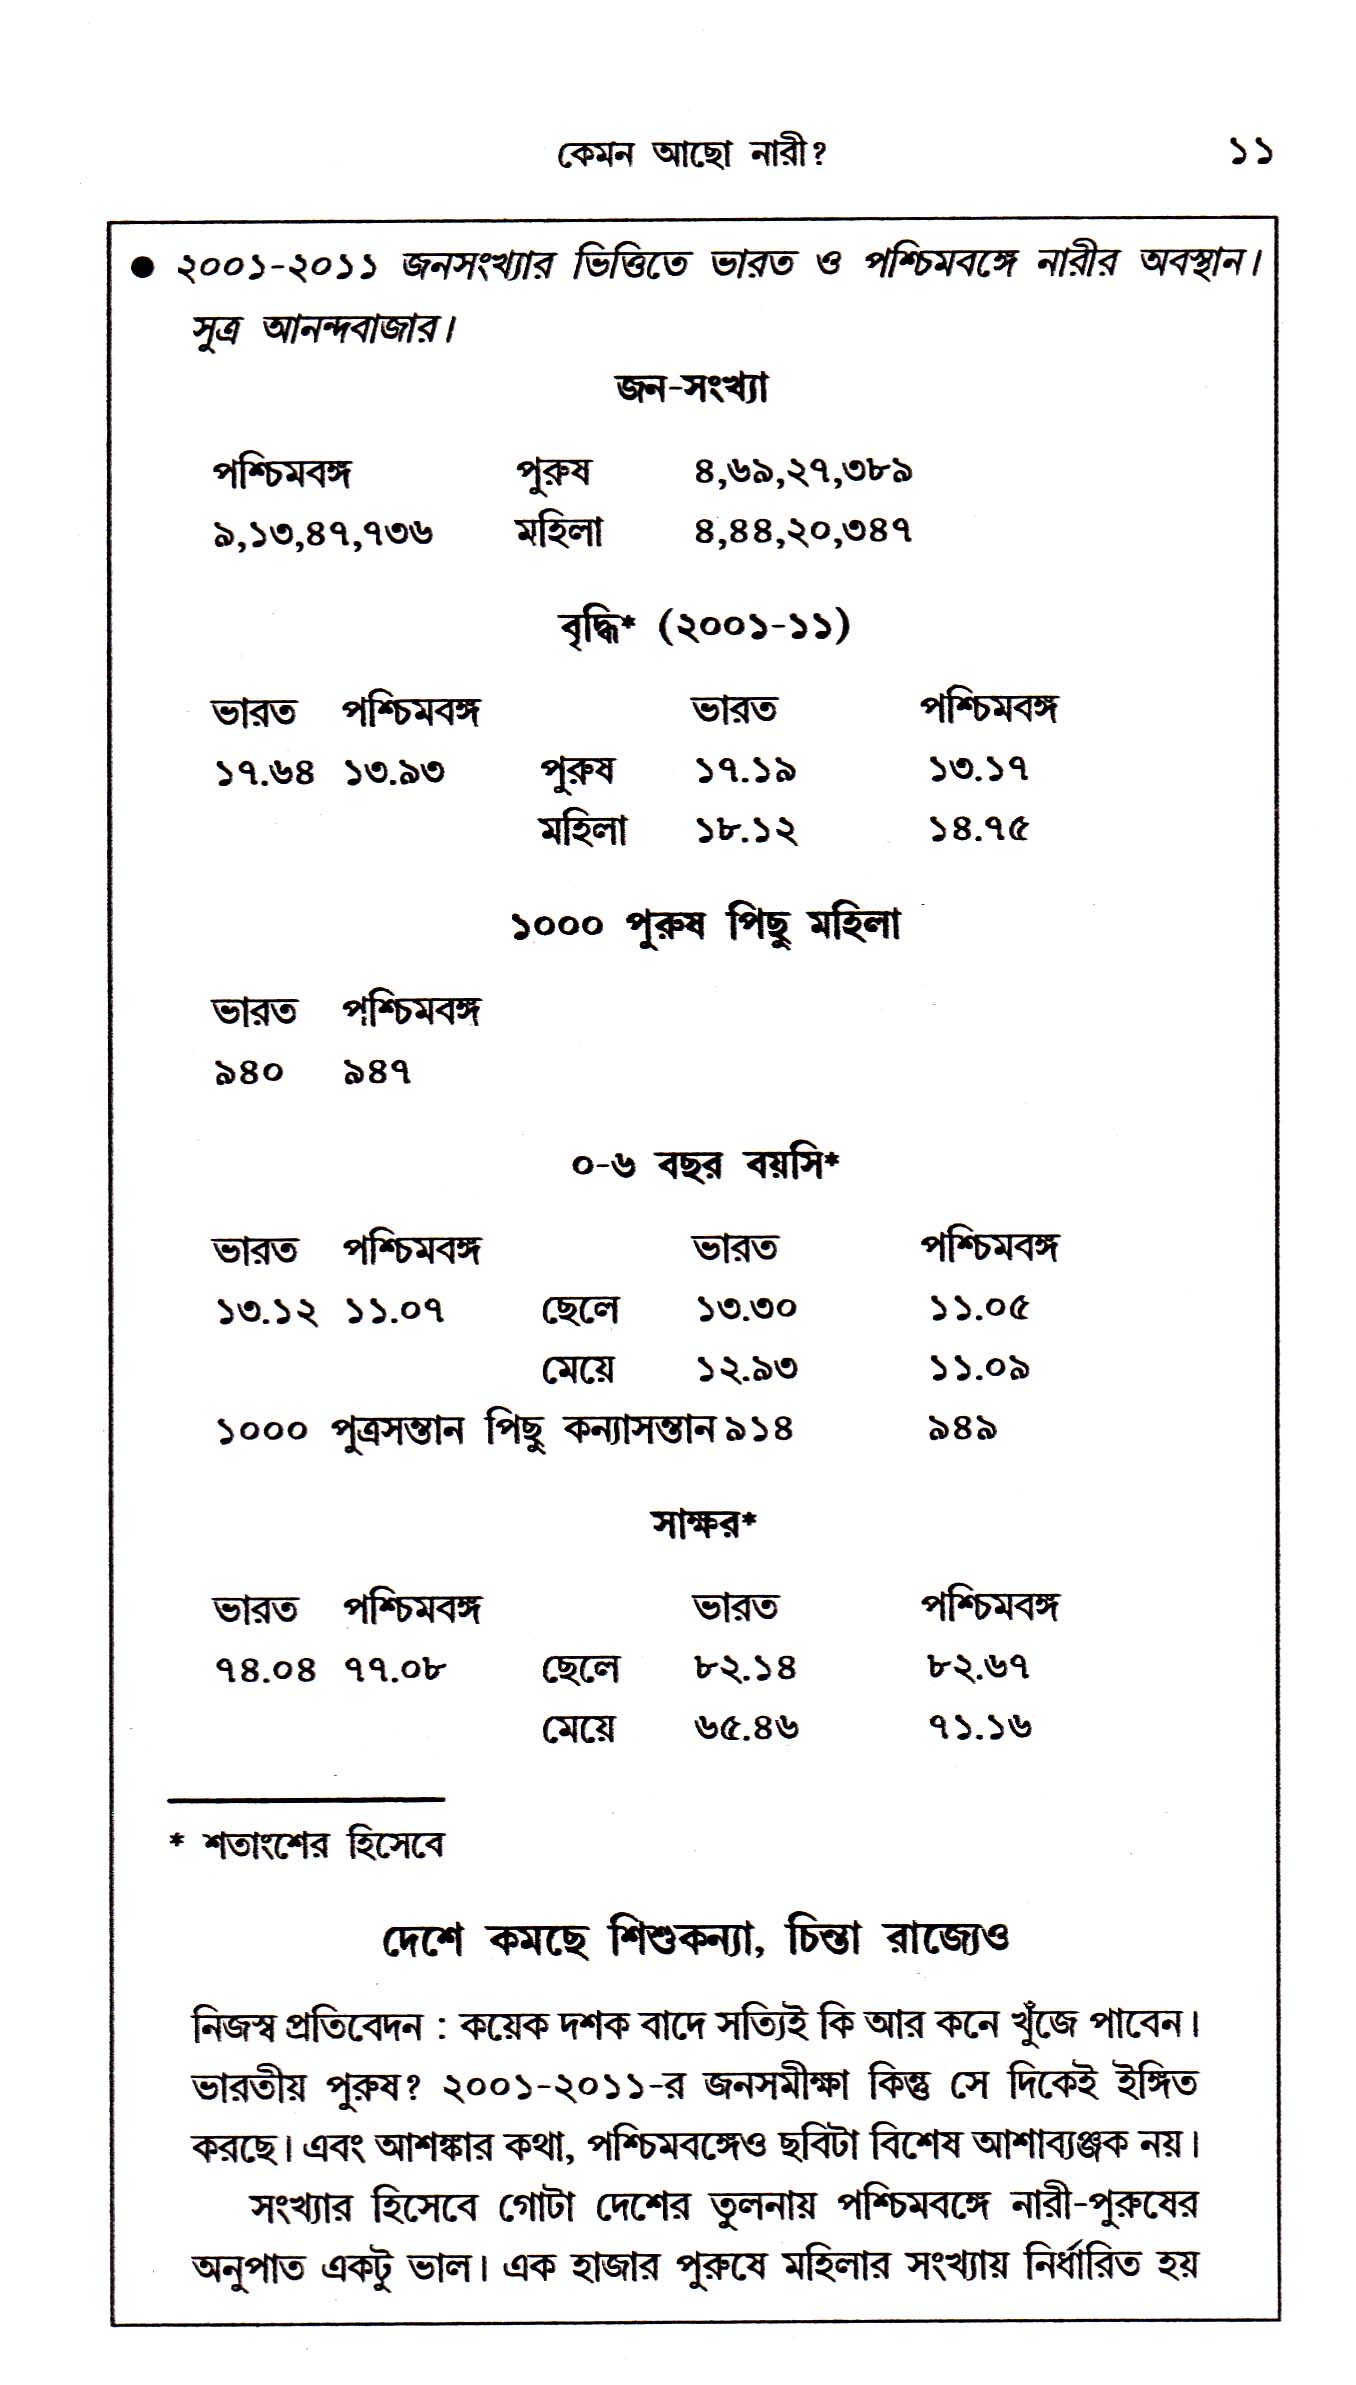 কেমন আছো নারী? ১১
● ২০০১-২০১১ জনসংখ্যার ভিত্তিতে ভারত ও পশ্চিমবঙ্গে নারীর অবস্থান।
সুত্র আনন্দবাজার।
জন-সংখ্যা
পশ্চিমবঙ্গ পুরুষ ৪,৬৯,২৭,৩৮৯
৯,১৩,৪৭,৭৩৬ মহিলা ৪,৪৪,২০,৩৪৭
বৃদ্ধি* (২০০১-১১)
ভারত পশ্চিমবঙ্গ ভারত পশ্চিমবঙ্গ
১৭.৬৪ ১৩.৯৩ পুরুষ ১৭.১৯ ১৩.১৭
মহিলা ১৮.১২ ১৪.৭৫
১০০০ পুরুষ পিছু মহিলা
ভারত পশ্চিমবঙ্গ
৯৪০ ৯৪৭
০-৬ বছর বয়সি*
ভারত পশ্চিমবঙ্গ ভারত পশ্চিমবঙ্গ
১৩.১২ ১১.০৭ ছেলে ১৩.৩০ ১১.০৫
মেয়ে ১২.৯৩ ১১.০৯
১০০০ পুত্রসন্তান পিছু কন্যাসন্তান ৯১৪ ৯৪৯
সাক্ষর*
ভারত পশ্চিমবঙ্গ ভারত পশ্চিমবঙ্গ
৭৪.০৪ ৭৭.০৮ ছেলে ৮২.১৪ ৮২.৬৭
মেয়ে ৬৫.৪৬ ৭১.১৬
* শতাংশের হিসেবে
দেশে কমছে শিশুকন্যা, চিন্তা রাজ্যেও
নিজস্ব প্রতিবেদন : কয়েক দশক বাদে সত্যিই কি আর কনে খুঁজে পাবেন।
ভারতীয় পুরুষ? ২০০১-২০১১-র জনসমীক্ষা কিন্তু সে দিকেই ইঙ্গিত
করছে। এবং আশঙ্কার কথা, পশ্চিমবঙ্গেও ছবিটা বিশেষ আশাব্যঞ্জক নয়।
সংখ্যার হিসেবে গোটা দেশের তুলনায় পশ্চিমবঙ্গে নারী-পুরুষের
অনুপাত একটু ভাল। এক হাজার পুরুষে মহিলার সংখ্যায় নির্ধারিত হয়